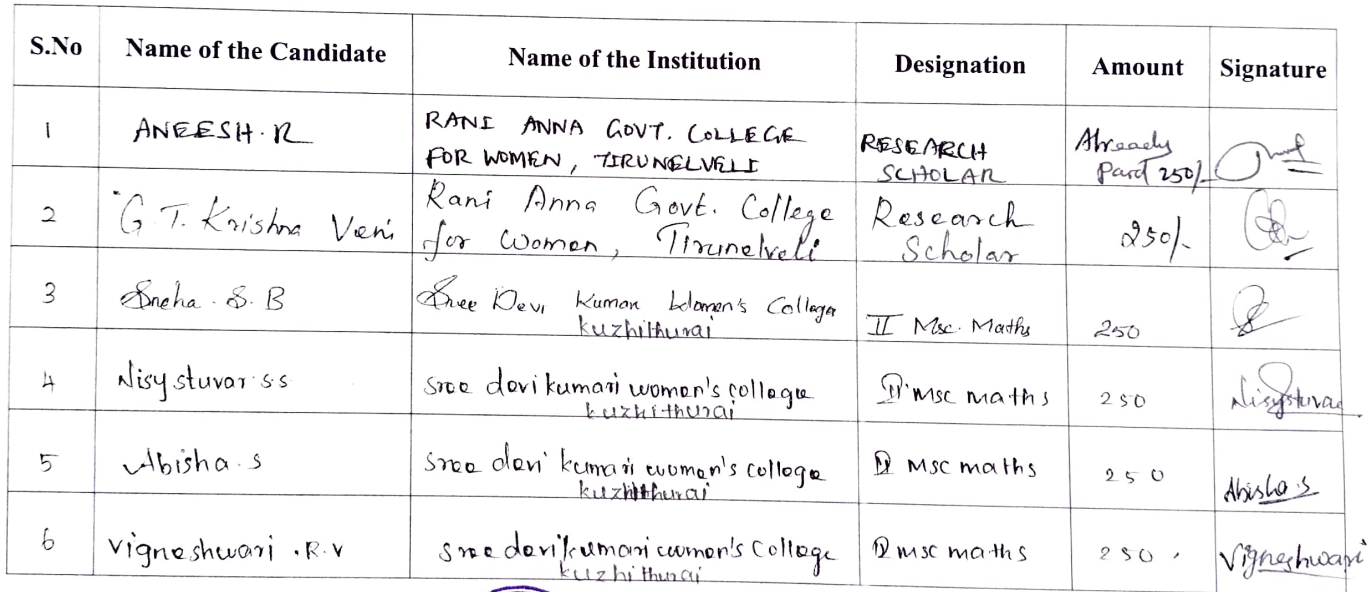 S.No Name of the Candidate Name of the Institution Designation Amount Signature
1 ANEESH.R RANI ANNA GOVT. COLLEGE FOR WOMEN, TIRUNELVELI RESEARCH SCHOLAR Already Paid 250/-
2 G T. Krishna Veni Rani Anna Govt. College for Women, Tirunelveli Research Scholar 250/-
3 Sneha. S. B Sree Devi Kumari Women's College kuzhithurai II Msc. Maths 250
4 Nisy stuvar s.s sree devi kumari women's college kuzhithurai II msc maths 250 Nisystuvar
5 Abisha. s sree devi kumari women's college kuzhithurai II MSC maths 250 Abisha.s
6 vigneshwari .R.V sree devi kumari women's College kuzhithurai II msc maths 250 Vigneshwari